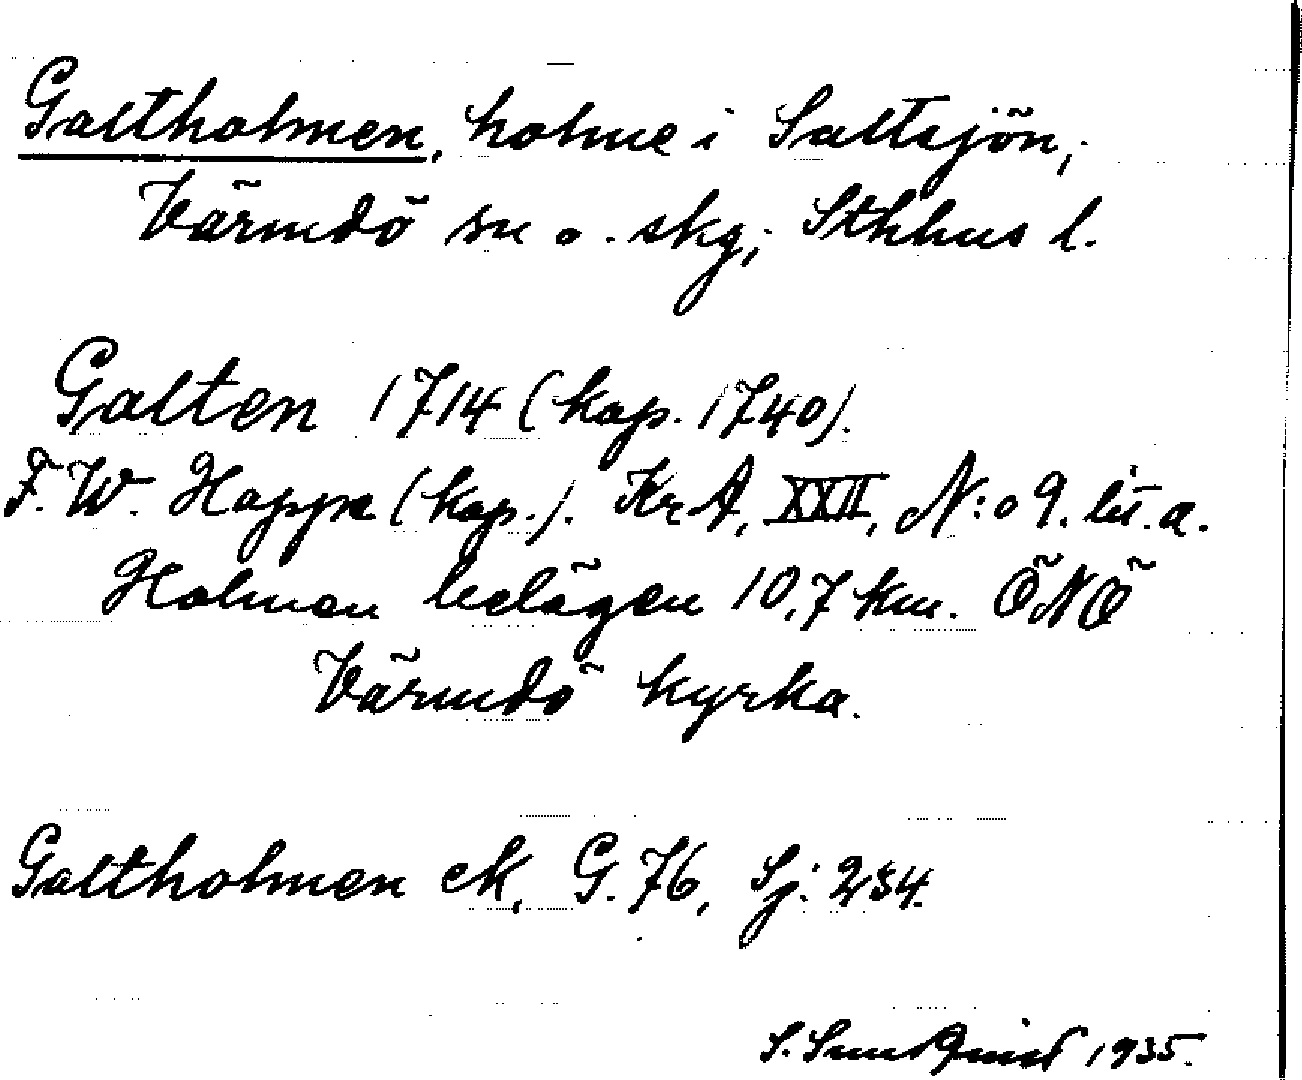 Galtholmen, holme i Saltsjön,
Värmdö sn o. skg, Sthlms l.
Galten 1714 (kop. 1740).
F. W. Hoppe (kop.). Kr A, XXII, N:o 9. lit. a.
Holmen belägen 10,7 km. ÖNÖ
Värmdö kyrka.
Galtholmen ek, G. 76, Sj: 234.
S. Sundquist 1935.